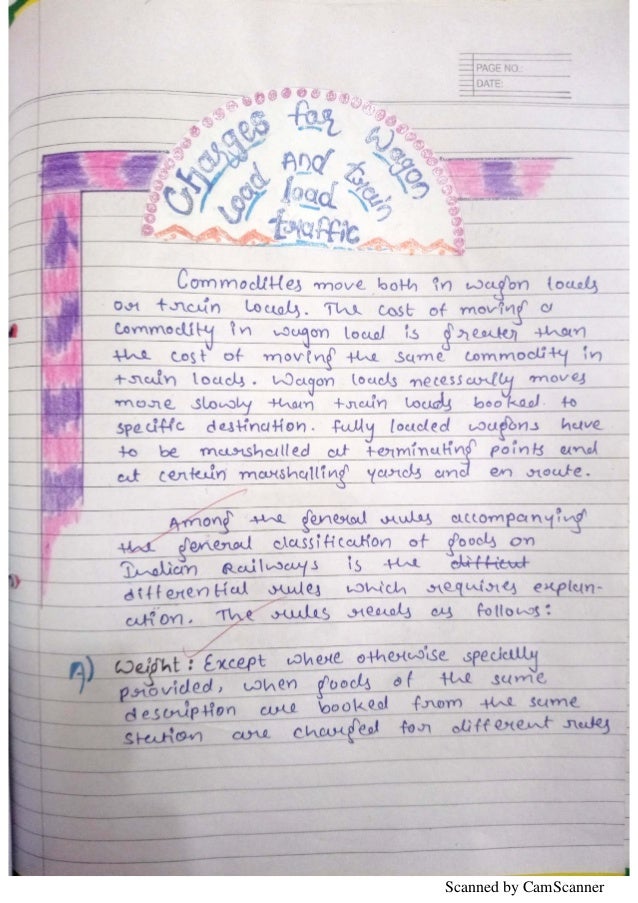 PAGE NO.:
DATE:
Charges for Wagon
Load And train
load
traffic
Commodities move both in wagon loads
or train loads. The cost of moving a
commodity in wagon load is greater than
the cost of moving the same commodity in
train loads. Wagon loads necessarily moves
more slowly than train loads booked to
specific destination. Fully loaded wagons have
to be marshalled at terminating points and
at certain marshalling yards and en route.
Among the general rules accompanying
the general classification of goods on
Indian Railways is the difficent
differential rules which requires explan-
ation. The rules reads as follows:
A) Weight: Except where otherwise specially
provided, when goods of the same
description are booked from the same
station are charged for different rates
Scanned by CamScanner